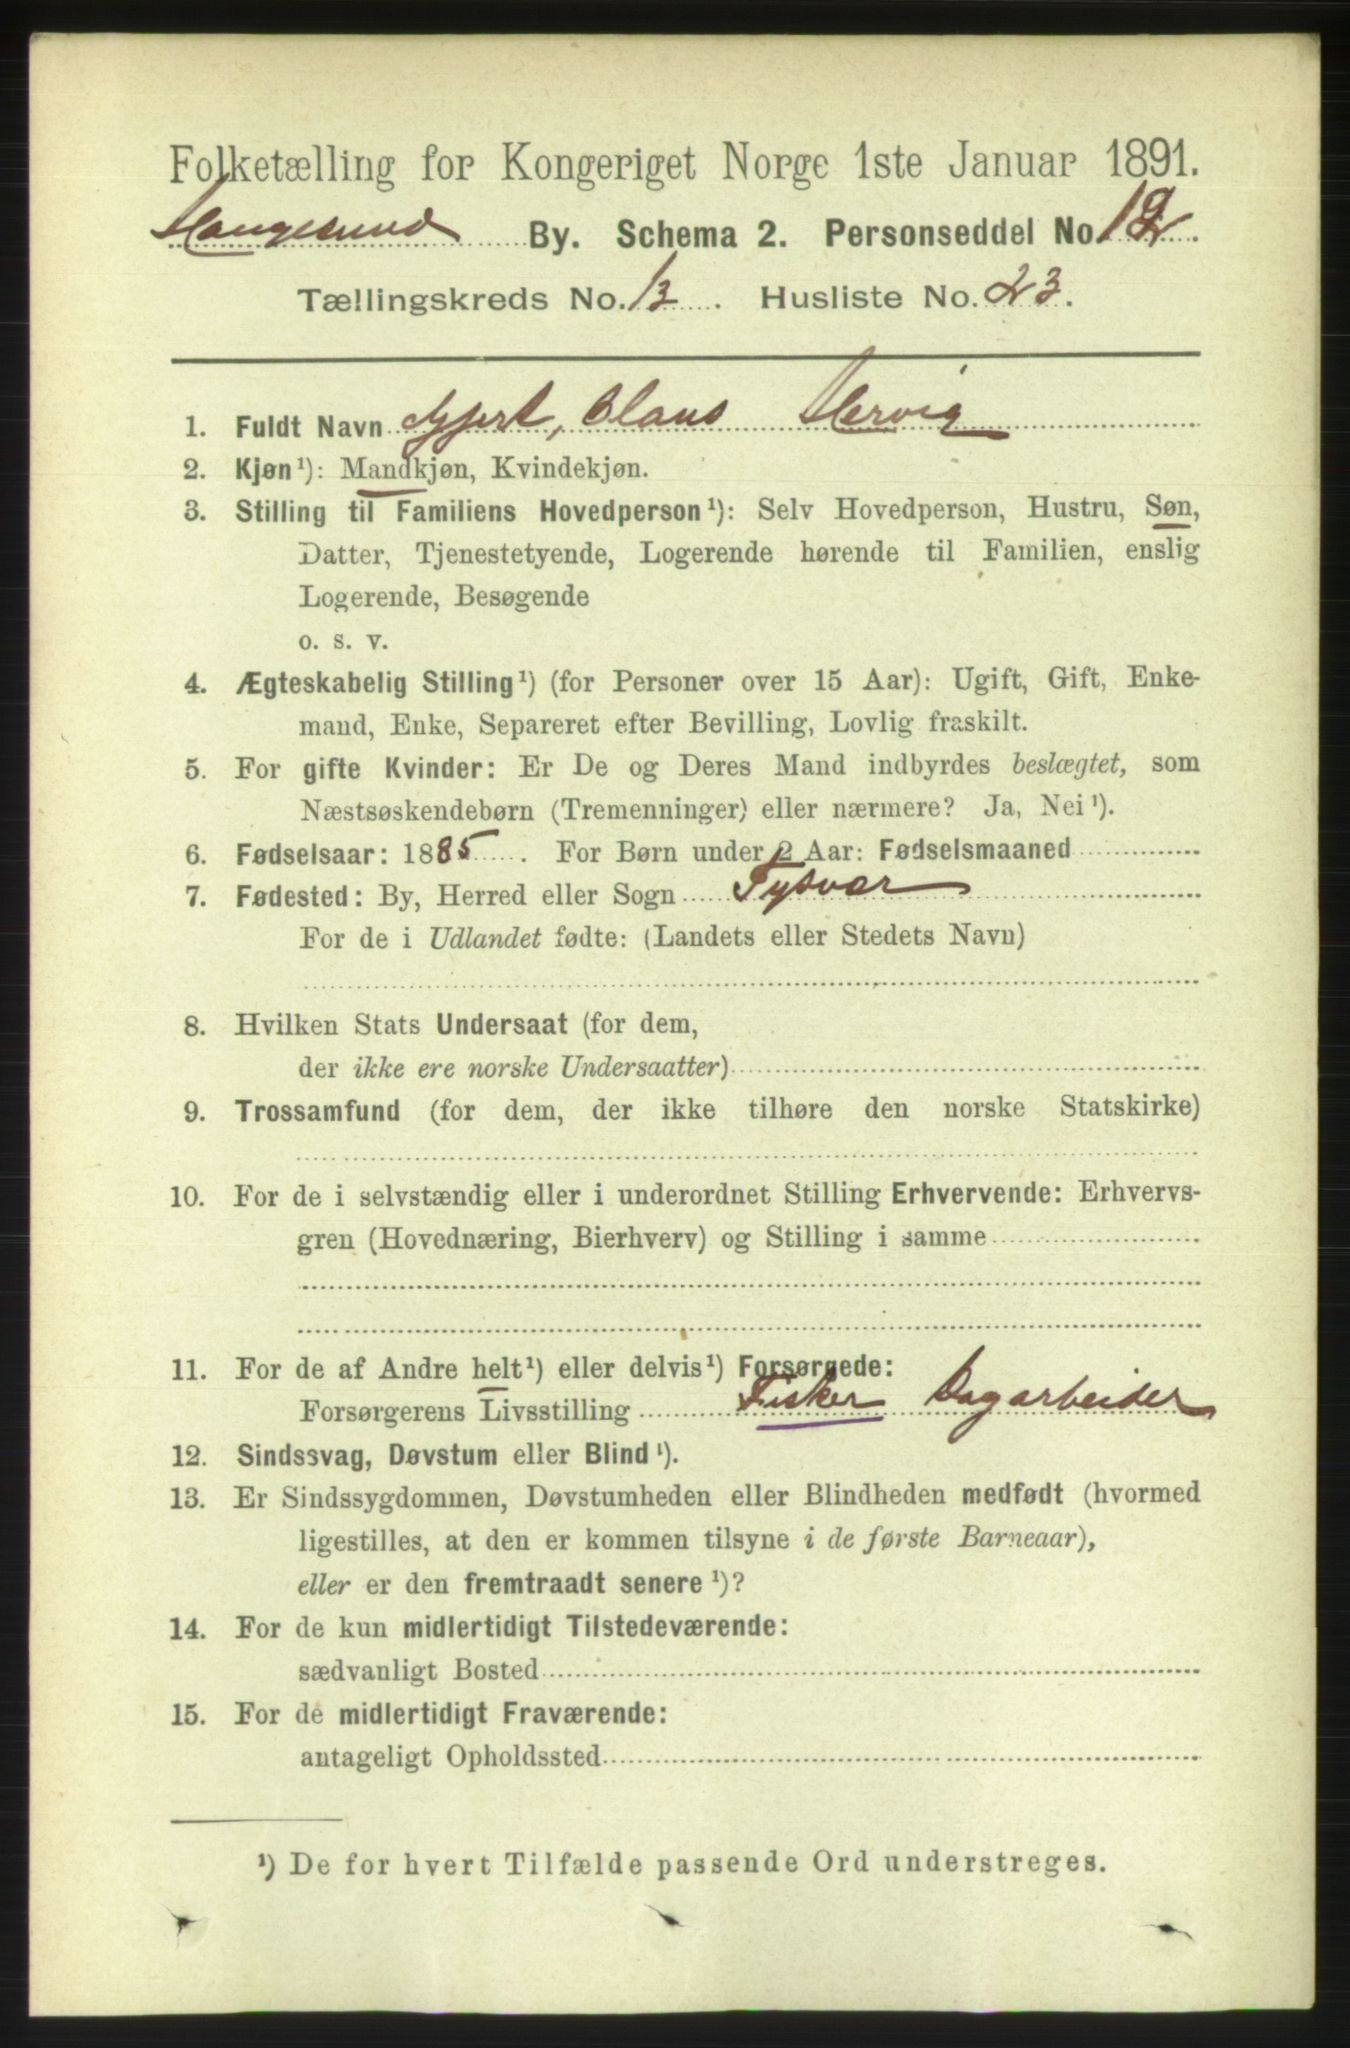 Folketælling for Kongeriget Norge 1ste Januar 1891.
Haugesund By. Schema 2. Personseddel No. 12.
Tællingskreds No. 13. Husliste No. 23.
1. Fuldt Navn Gjert, Claus Hervig
2. Kjøn¹): Mandkjøn, Kvindekjøn.
3. Stilling til Familiens Hovedperson¹): Selv Hovedperson, Hustru, Søn,
Datter, Tjenestetyende, Logerende hørende til Familien, enslig
Logerende, Besøgende
o. s. v.
4. Ægteskabelig Stilling¹) (for Personer over 15 Aar): Ugift, Gift, Enke-
mand, Enke, Separeret efter Bevilling, Lovlig fraskilt.
5. For gifte Kvinder: Er De og Deres Mand indbyrdes beslægtet, som
Næstsøskendebørn (Tremenninger) eller nærmere? Ja, Nei¹).
6. Fødselsaar: 1885. For Børn under 2 Aar: Fødselsmaaned
7. Fødested: By, Herred eller Sogn Tysvær
For de i Udlandet fødte: (Landets eller Stedets Navn)
8. Hvilken Stats Undersaat (for dem,
der ikke ere norske Undersaatter)
9. Trossamfund (for dem, der ikke tilhøre den norske Statskirke)
10. For de i selvstændig eller i underordnet Stilling Erhvervende: Erhvervs-
gren (Hovednæring, Bierhverv) og Stilling i samme
11. For de af Andre helt¹) eller delvis¹) Forsørgede:
Forsørgerens Livsstilling Fisker Dagarbeider
12. Sindssvag, Døvstum eller Blind¹).
13. Er Sindssygdommen, Døvstumheden eller Blindheden medfødt (hvormed
ligestilles, at den er kommen tilsyne i de første Barneaar),
eller er den fremtraadt senere¹)?
14. For de kun midlertidigt Tilstedeværende:
sædvanligt Bosted
15. For de midlertidigt Fraværende:
antageligt Opholdssted
¹) De for hvert Tilfælde passende Ord understreges.